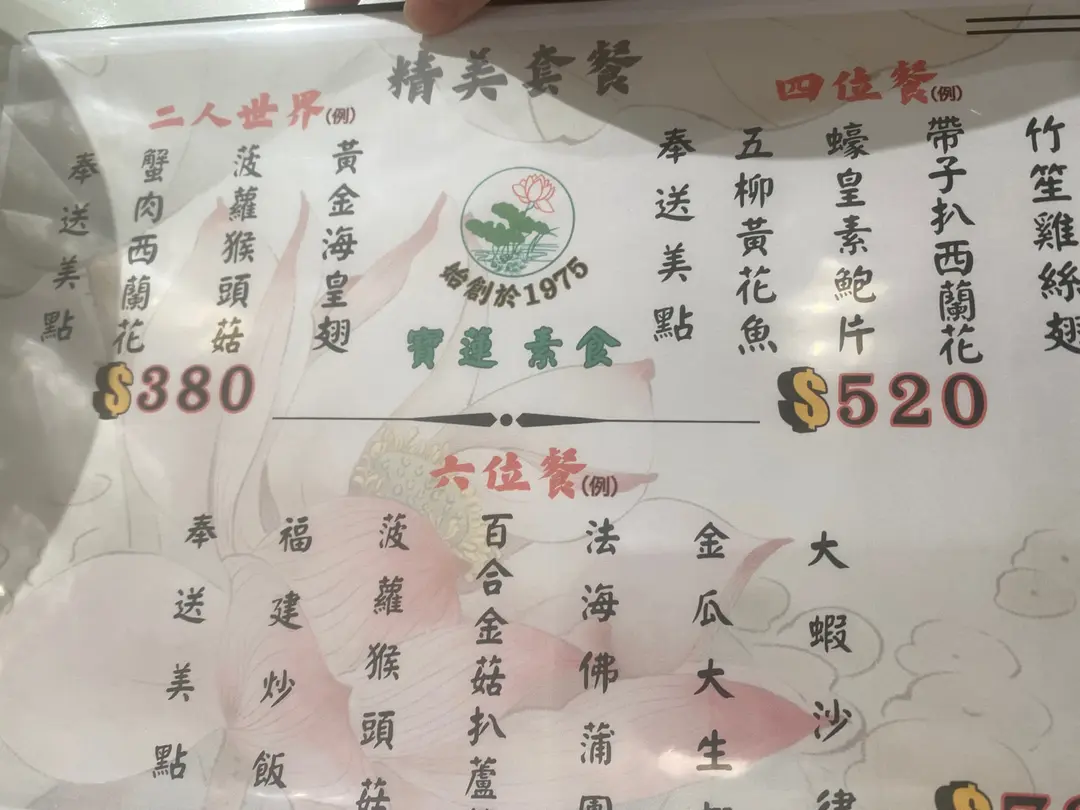 精美套餐
二人世界(例)
黃金海皇翅
菠蘿猴頭菇
蟹肉西蘭花
奉送美點
$380
始創於1975
寶蓮素食
四位餐(例)
竹笙雞絲翅
帶子扒西蘭花
蠔皇素鮑片
五柳黃花魚
奉送美點
$520
六位餐(例)
大蝦沙律
金瓜大生
法海佛蒲團
百合金菇扒蘆
菠蘿猴頭菇
福建炒飯
奉送美點
$7